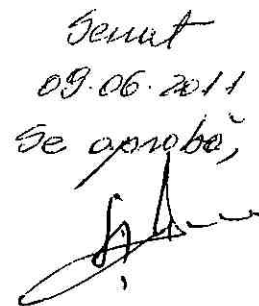 Senat
09.06.2011
Se aprobă,